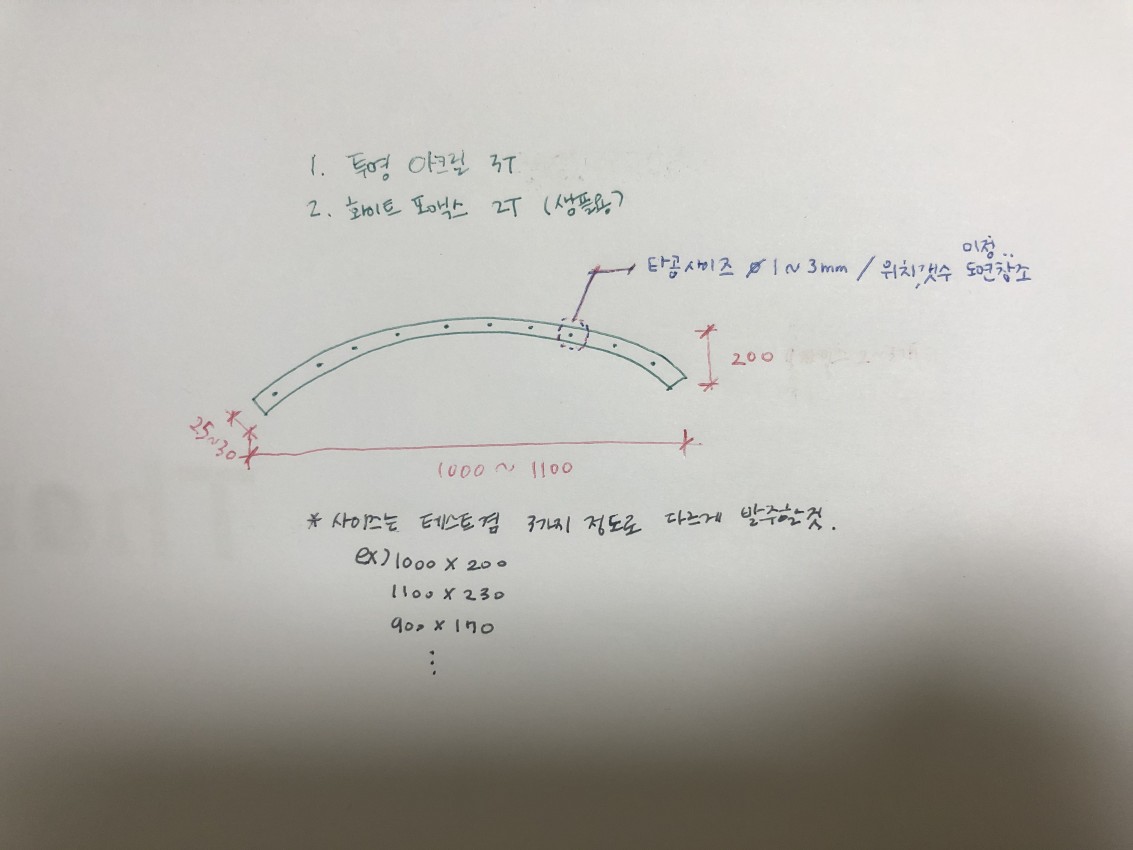 1. 투명 아크릴 3T
2. 화이트 포맥스 2T (샘플용)
미정..
타공사이즈 ø1~3mm / 위치,갯수 도면참조
200
25~30
1000 ~ 1100
* 사이즈는 테스트겸 3가지 정도로 다르게 발주할것.
ex) 1000 x 200
1100 x 230
900 x 170
⋮